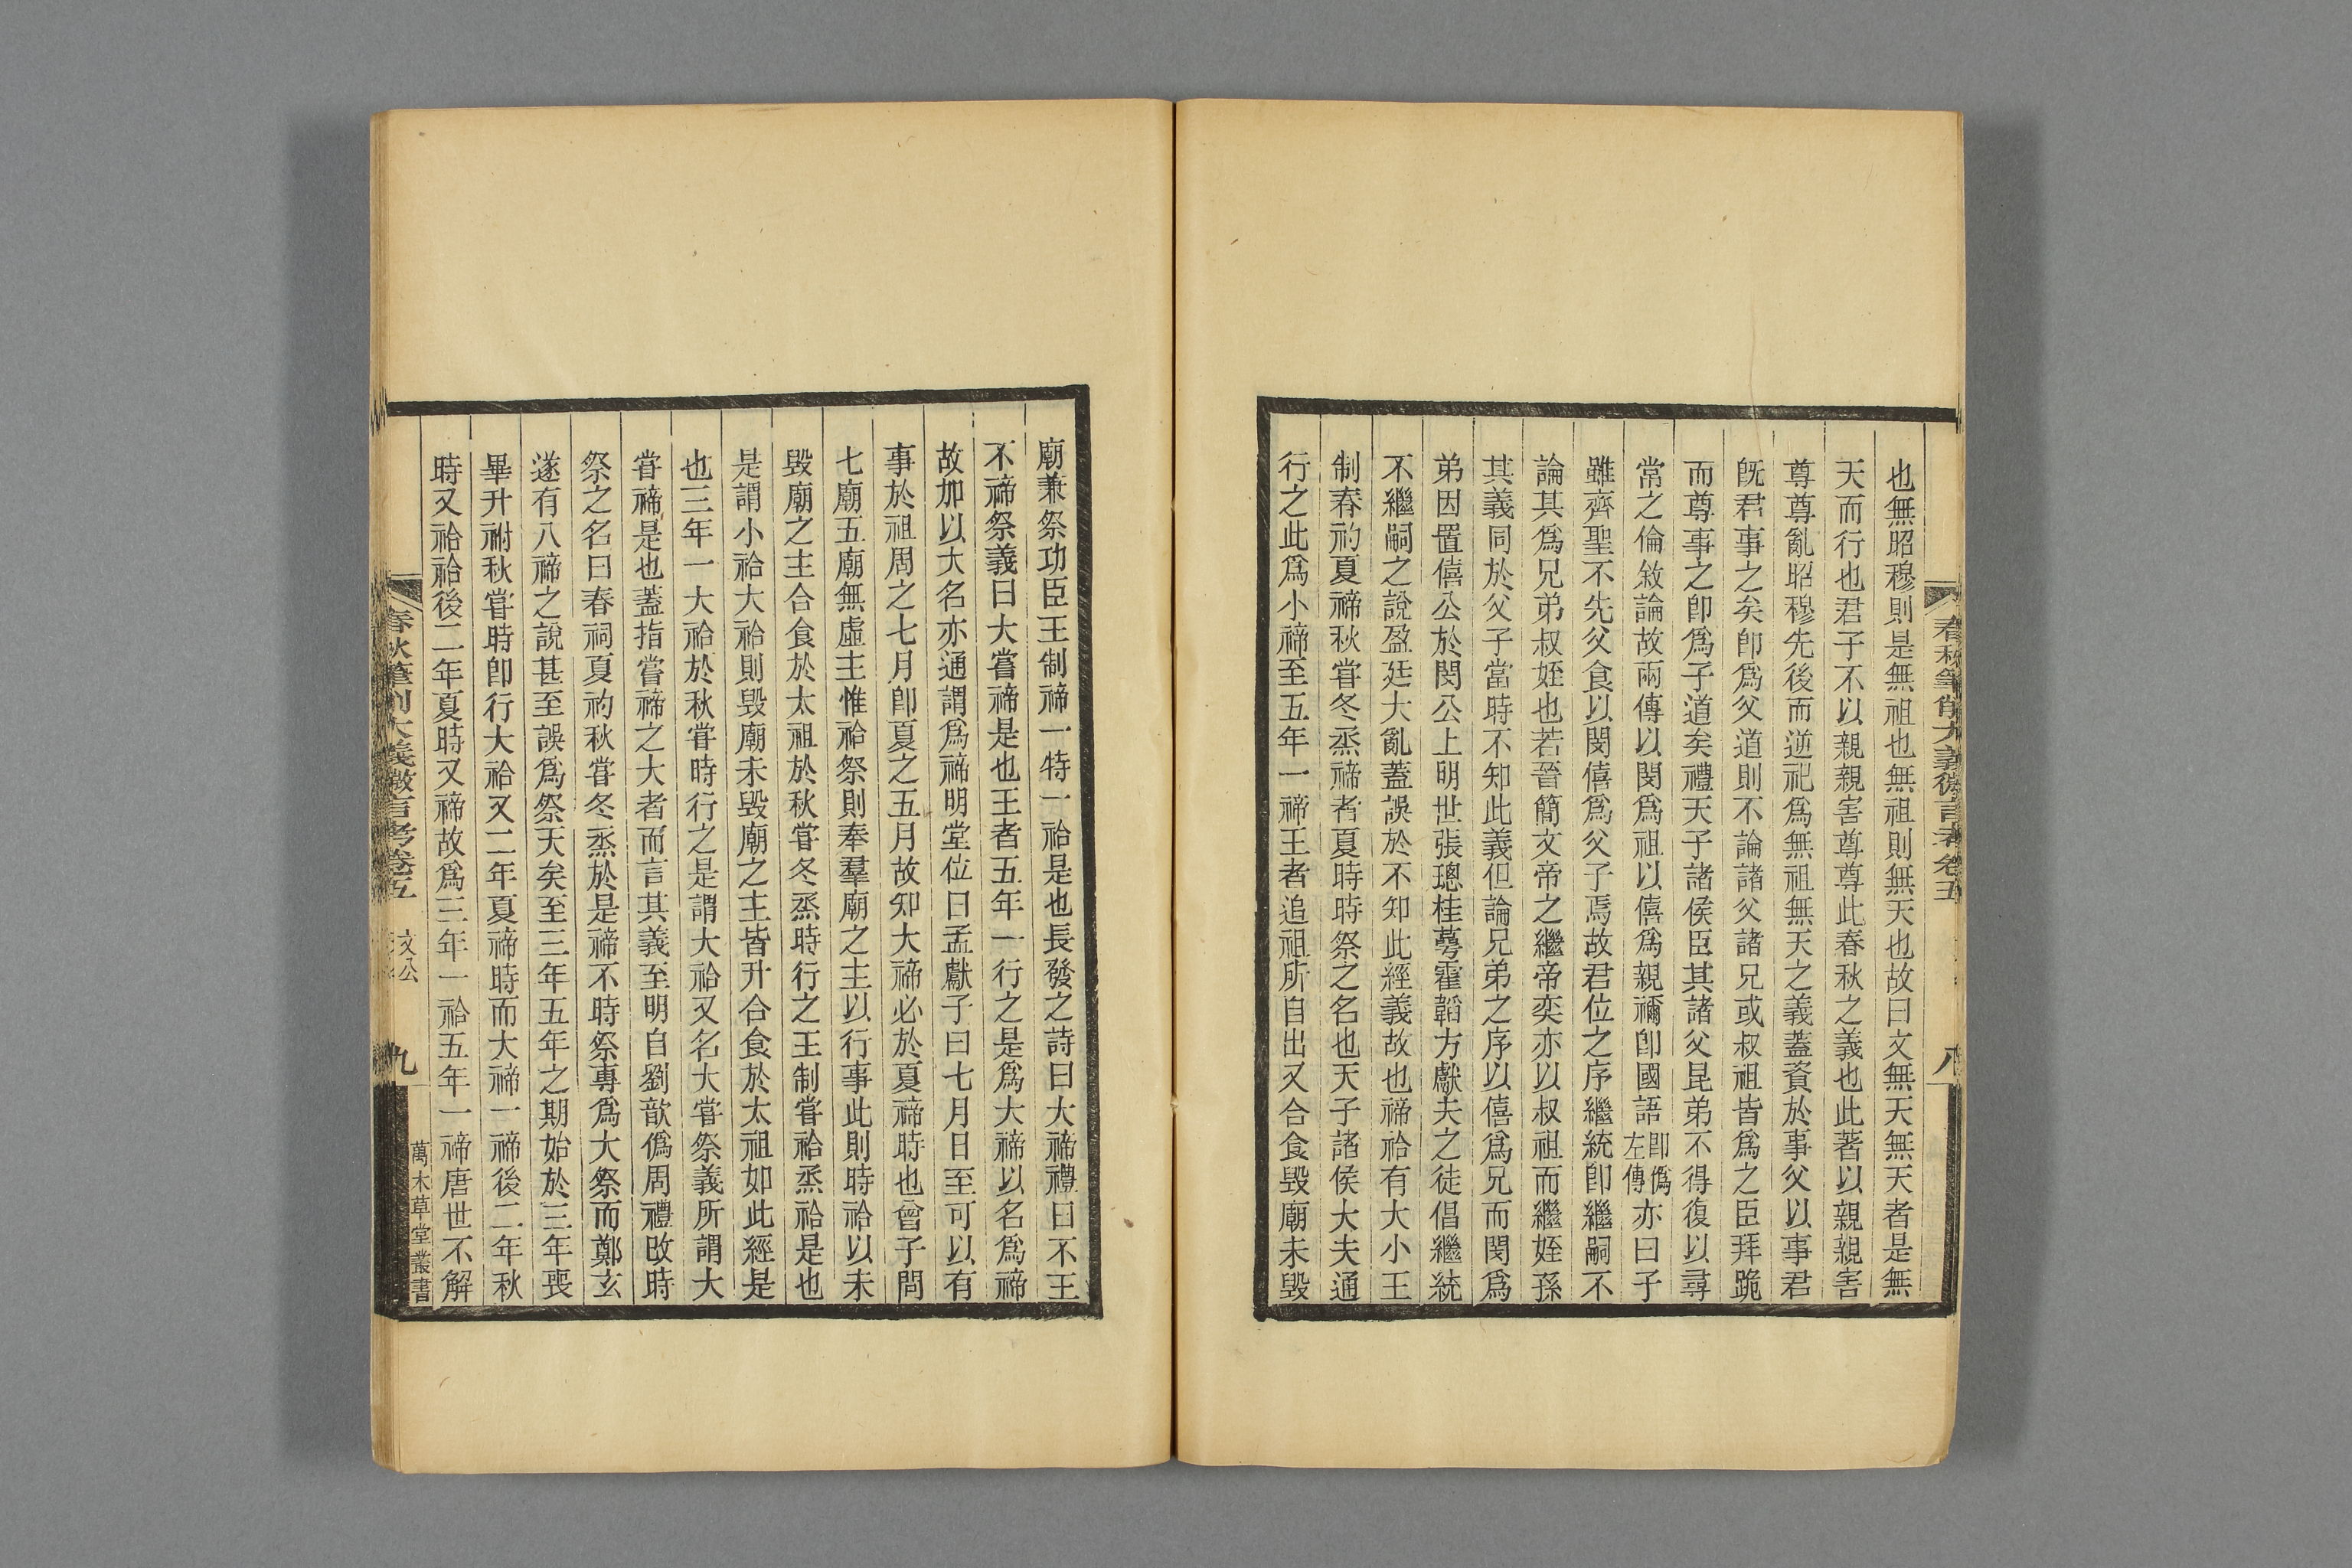 春秋筆削大義微言考卷五
八
也無昭穆則是無祖也無祖則無天也故曰文無天無天者是無
天而行也君子不以親親害尊尊此春秋之義也此著以親親害
尊尊亂昭穆先後而逆祀爲無祖無天之義蓋資於事父以事君
旣君事之矣卽爲父道則不論諸父諸兄或叔祖皆爲之臣拜跪
而尊事之卽爲子道矣禮天子諸侯臣其諸父昆弟不得復以尋
常之倫敘論故兩傳以閔爲祖以僖爲親禰卽國語卽僞左傳亦曰子
雖齊聖不先父食以閔僖爲父子焉故君位之序繼統卽繼嗣不
論其爲兄弟叔姪也若晉簡文帝之繼帝奕亦以叔祖而繼姪孫
其義同於父子當時不知此義但論兄弟之序以僖爲兄而閔爲
弟因置僖公於閔公上明世張璁桂萼霍韜方獻夫之徒倡繼統
不繼嗣之說盈廷大亂蓋誤於不知此經義故也禘祫有大小王
制春礿夏禘秋嘗冬烝禘者夏時時祭之名也天子諸侯大夫通
行之此爲小禘至五年一禘王者追祖所自出又合食毀廟未毀
廟兼祭功臣王制禘一特一祫是也長發之詩曰大禘禮曰不王
不禘祭義曰大嘗禘是也王者五年一行之是爲大禘以名爲禘
故加以大名亦通謂爲禘明堂位曰孟獻子曰七月日至可以有
事於祖周之七月卽夏之五月故知大禘必於夏禘時也曾子問
七廟五廟無虛主惟祫祭則奉羣廟之主以行事此則時祫以未
毀廟之主合食於太祖於秋嘗冬烝時行之王制嘗祫烝祫是也
是謂小祫大祫則毀廟未毀廟之主皆升合食於太祖如此經是
也三年一大祫於秋嘗時行之是謂大祫又名大嘗祭義所謂大
嘗禘是也蓋指嘗禘之大者而言其義至明自劉歆僞周禮改時
祭之名曰春祠夏礿秋嘗冬烝於是禘不時祭專爲大祭而鄭玄
遂有八禘之說甚至誤爲祭天矣至三年五年之期始於三年喪
畢升祔秋嘗時卽行大祫又二年夏禘時而大禘一禘後二年秋
時又祫祫後二年夏時又禘故爲三年一祫五年一禘唐世不解
春秋筆削大義微言考卷五
文公
九
萬木草堂叢書